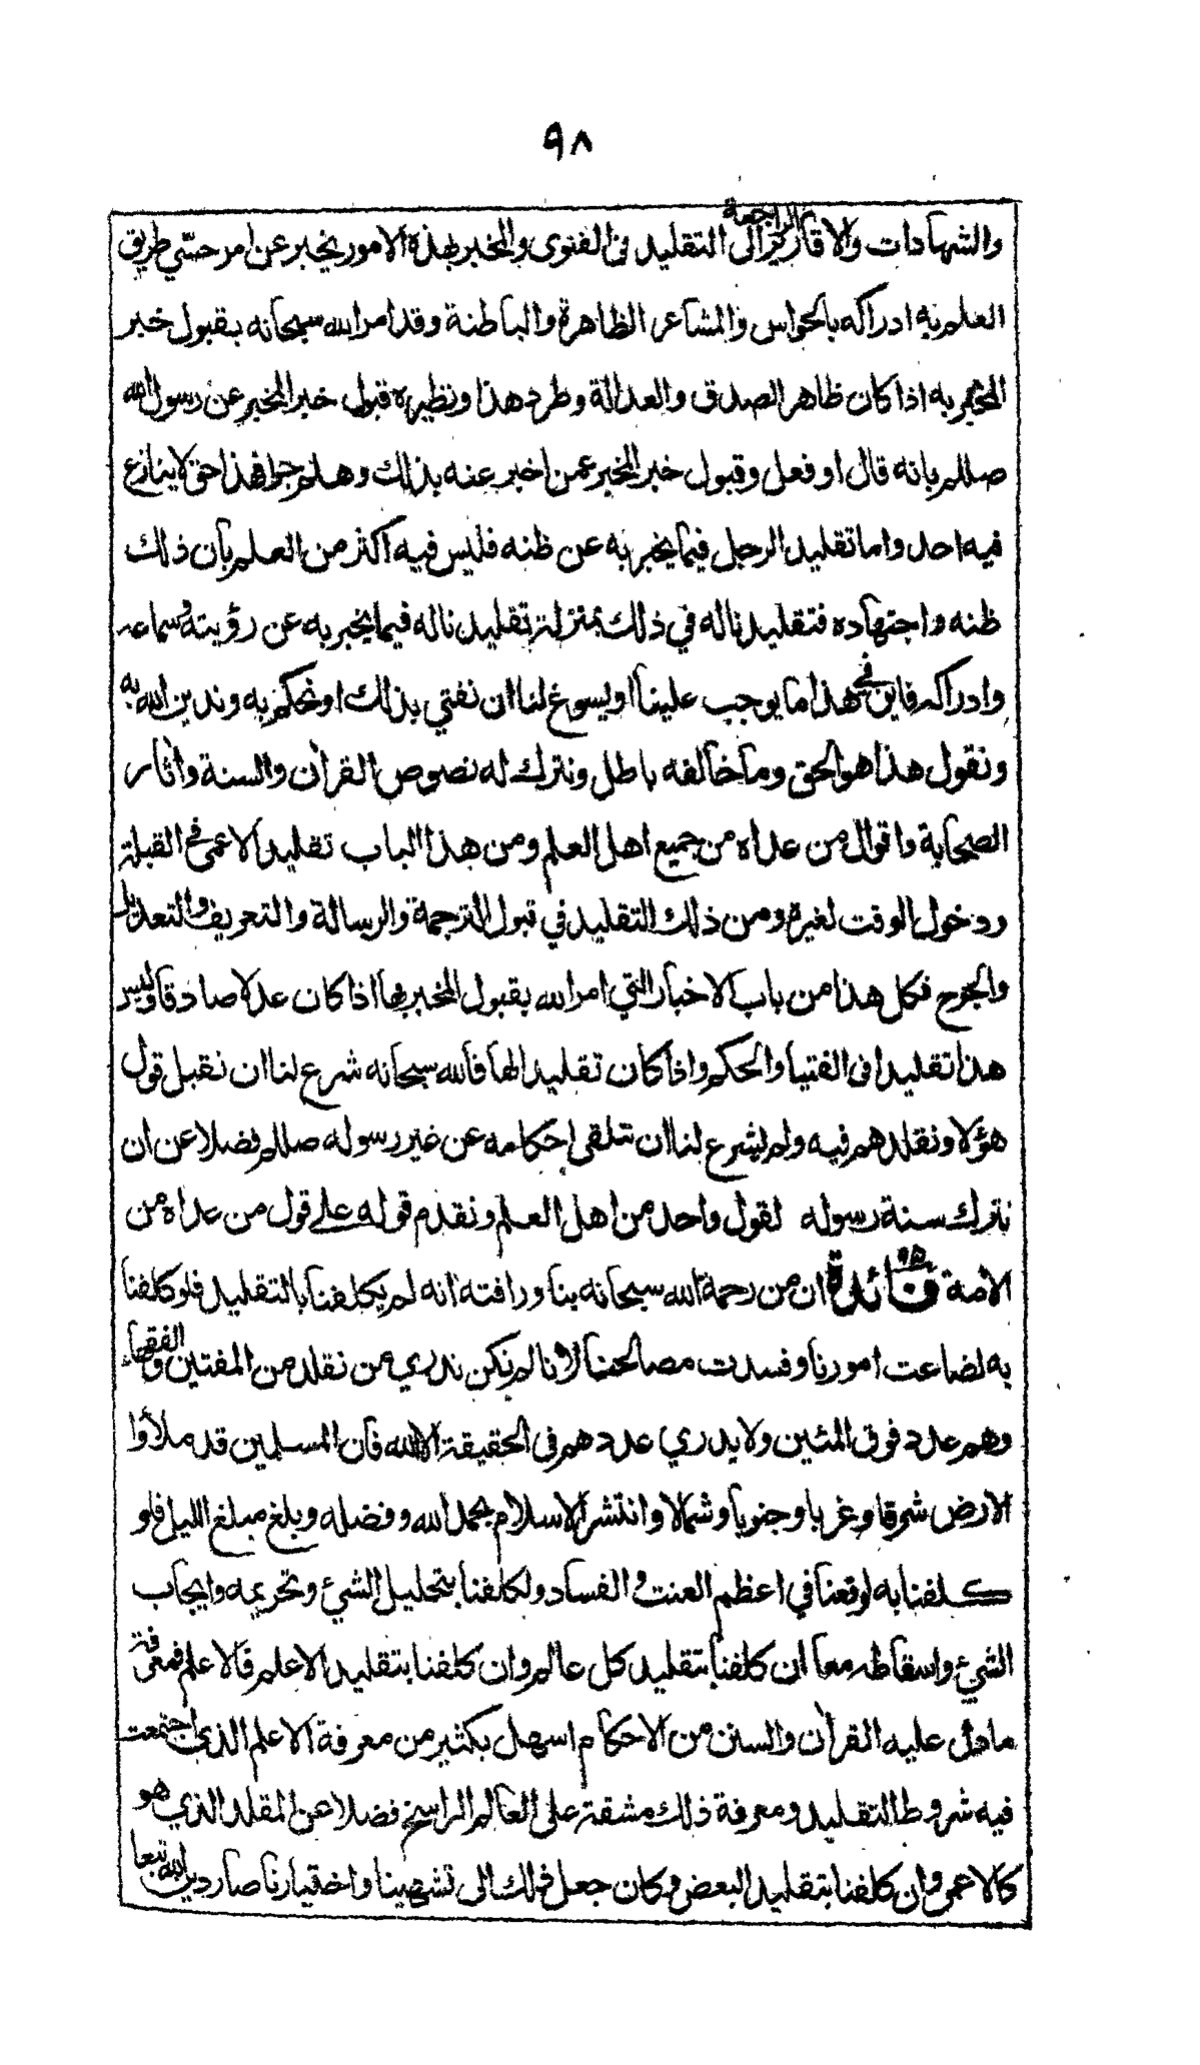 ٩٨
والشهادات والاقارير الراجعة الى التقليد فى الفتوى والمخبر بهذه الامور يخبر عن امر حسّي طريق
العلم به ادراكه بالحواس والمشاعر الظاهرة والباطنة وقد امر الله سبحانه بقبول خبر
المخبر به اذا كان ظاهر الصدق والعدالة وطرد هذا ونظيره قبول خبر المخبر عن رسول الله
صللم بانه قال او فعل وقبول خبر المخبر عمن اخبر عنه بذلك وهلم جرا فهذا حق لا ينازع
فيه احد واما تقليد الرجل فيما يخبر به عن ظنه فليس فيه اكثر من العلم بان ذلك
ظنه واجتهاده فتقليدنا له في ذلك بمنزلة تقليدنا له فيما يخبر به عن رؤيته وسماعه
وادراكه فاين في هذا ما يوجب علينا او يسوغ لنا ان نفتي بذلك او نحكم به وندين الله به
ونقول هذا هو الحق وما خالفه باطل ونترك له نصوص القران والسنة واثار
الصحابة واقوال من عداه من جميع اهل العلم ومن هذا الباب تقليد الاعمى في القبلة
ودخول الوقت لغيره ومن ذلك التقليد في قبول الترجمة والرسالة والتعريف والتعديل
والجرح فكل هذا من باب الاخبار التي امر الله بقبول المخبر بها اذا كان عدلا صادقا وليس
هذا تقليدا فى الفتيا والحكم واذا كان تقليدا لها فالله سبحانه شرع لنا ان نقبل قول
هؤلا ونقلدهم فيه ولم يشرع لنا ان نتلقى احكامه عن غير رسوله صللم فضلا عن ان
نترك سنة رسوله لقول واحد من اهل العلم ونقدم قوله على قول من عداه من
الامة فائدة ان من رحمة الله سبحانه بنا ورافته انه لم يكلفنا بالتقليد فلو كلفنا
به لضاعت امورنا وفسدت مصالحنا لانا لم نكن ندري من نقلد من المفتين والفقهاء
وهم عدد فوق المئين ولا يدري عددهم فى الحقيقة الا الله فان المسلمين قد ملأوا
الارض شرقا وغربا وجنوبا وشمالا وانتشر الاسلام بحمد الله وفضله وبلغ مبلغ الليل فلو
كلفنا به لوقعنا في اعظم العنت والفساد ولكلفنا بتحليل الشيء وتحريمه وايجاب
الشيء واسقاطه معا ان كلفنا بتقليد كل عالم وان كلفنا بتقليد الاعلم فالاعلم فمعرفة
ما دل عليه القران والسنن من الاحكام اسهل بكثير من معرفة الاعلم الذي اجتمعت
فيه شروط التقليد ومعرفة ذلك مشقة على العالم الراسخ فضلا عن المقلد الذي هو
كالاعمى وان كلفنا بتقليد البعض وكان جعل ذلك الى تشهينا واختيارنا صار دين الله تبعا